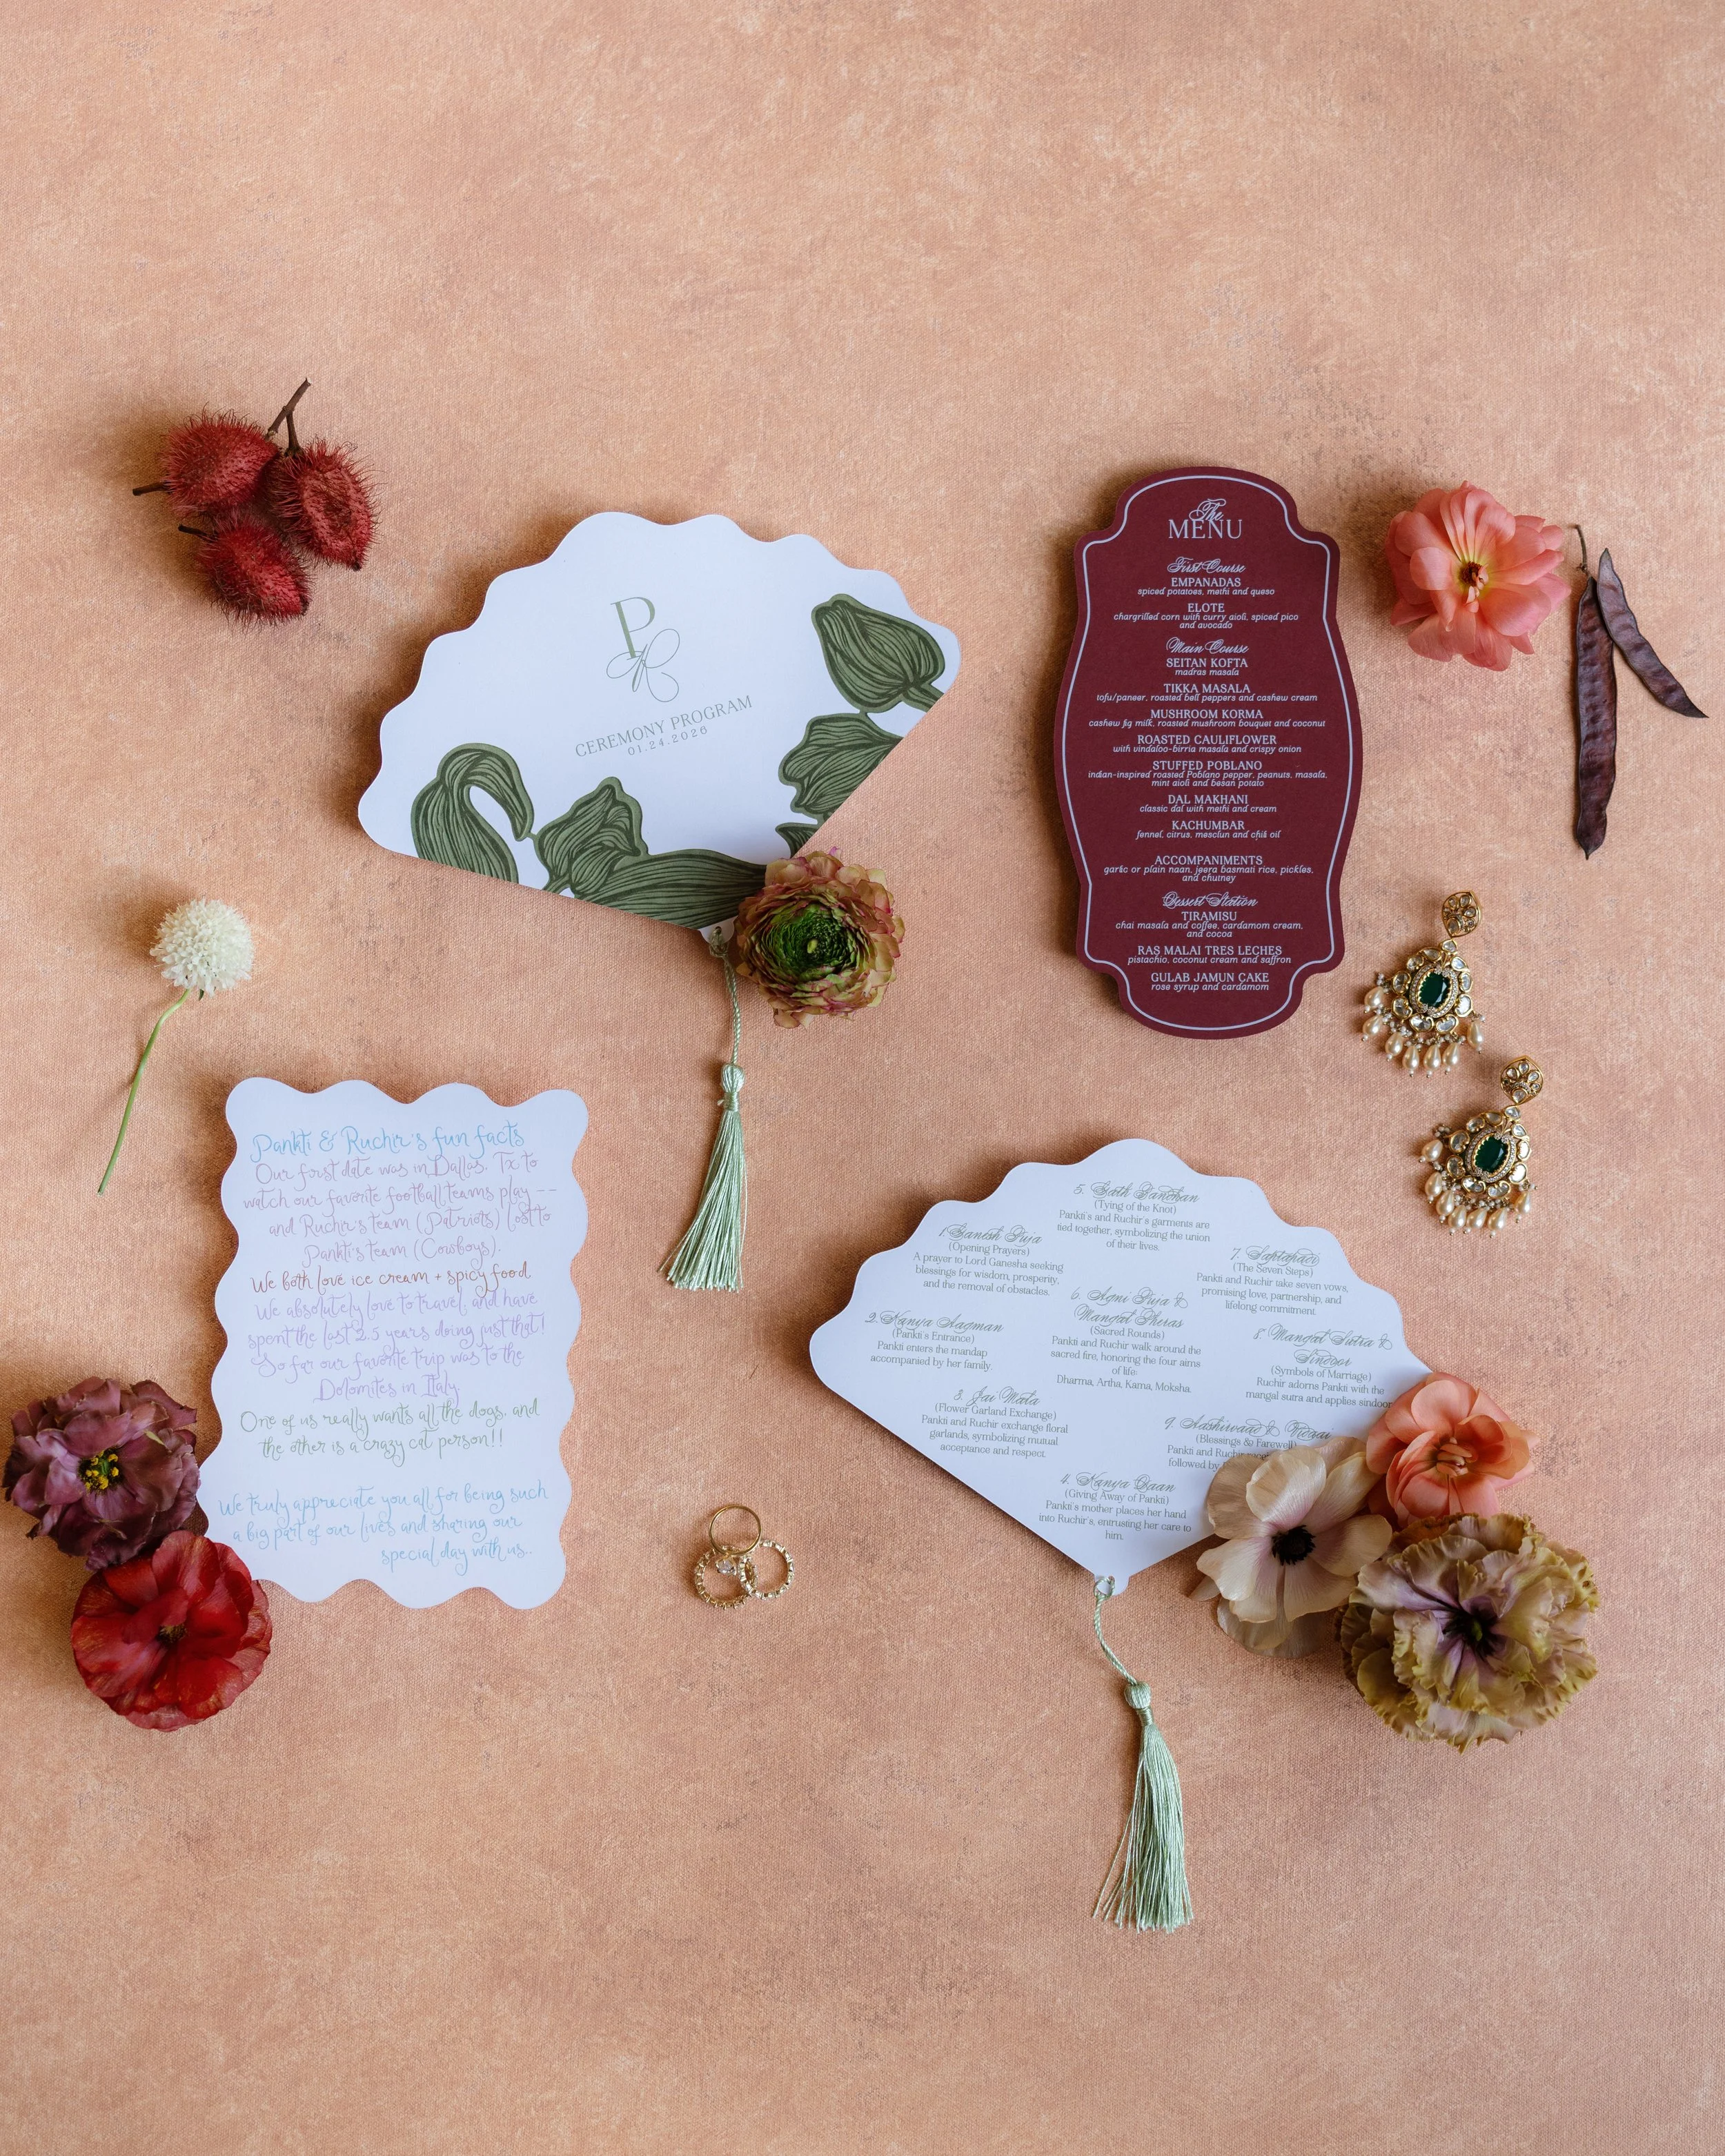 P
R
CEREMONY PROGRAM
01.24.2026
The
MENU
First Course
EMPANADAS
spiced potatoes, methi and queso
ELOTE
chargrilled corn with curry aioli, spiced pico
and avocado
Main Course
SEITAN KOFTA
madras masala
TIKKA MASALA
tofu/paneer, roasted bell peppers and cashew cream
MUSHROOM KORMA
cashew fig milk, roasted mushroom bouquet and coconut
ROASTED CAULIFLOWER
with vindaloo-birria masala and crispy onion
STUFFED POBLANO
indian-inspired roasted Poblano pepper, peanuts, masala,
mint aioli and besan potato
DAL MAKHANI
classic dal with methi and cream
KACHUMBAR
fennel, citrus, mesclun and chili oil
ACCOMPANIMENTS
garlic or plain naan, jeera basmati rice, pickles,
and chutney
Dessert Station
TIRAMISU
chai masala and coffee, cardamom cream,
and cocoa
RAS MALAI TRES LECHES
pistachio, coconut cream and saffron
GULAB JAMUN CAKE
rose syrup and cardamom
Pankti & Ruchir's fun facts
Our first date was in Dallas, Tx to
watch our favorite football teams play --
and Ruchir's team (Patriots) lost to
Pankti's team (Cowboys).
We both love ice cream + spicy food
We absolutely love to travel, and have
spent the last 2.5 years doing just that!
So far our favorite trip was to the
Dolomites in Italy
One of us really wants all the dogs, and
the other is a crazy cat person!!
We truly appreciate you all for being such
a big part of our lives and sharing our
special day with us..
1. Ganesh Puja
(Opening Prayers)
A prayer to Lord Ganesha seeking
blessings for wisdom, prosperity,
and the removal of obstacles.
2. Kanya Aagman
(Pankti's Entrance)
Pankti enters the mandap
accompanied by her family.
3. Jai Mala
(Flower Garland Exchange)
Pankti and Ruchir exchange floral
garlands, symbolizing mutual
acceptance and respect.
4. Kanya Daan
(Giving Away of Pankti)
Pankti's mother places her hand
into Ruchir's, entrusting her care to
him.
5. Gath Bandhan
(Tying of the Knot)
Pankti's and Ruchir's garments are
tied together, symbolizing the union
of their lives.
6. Agni Puja &
Mangal Pheras
(Sacred Rounds)
Pankti and Ruchir walk around the
sacred fire, honoring the four aims
of life:
Dharma, Artha, Kama, Moksha.
7. Saptapadi
(The Seven Steps)
Pankti and Ruchir take seven vows,
promising love, partnership, and
lifelong commitment.
8. Mangal Sutra &
Sindoor
(Symbols of Marriage)
Ruchir adorns Pankti with the
mangal sutra and applies sindoor
9. Aashirwaad & Vidaai
(Blessings & Farewell)
Pankti and Ruchir
followed by